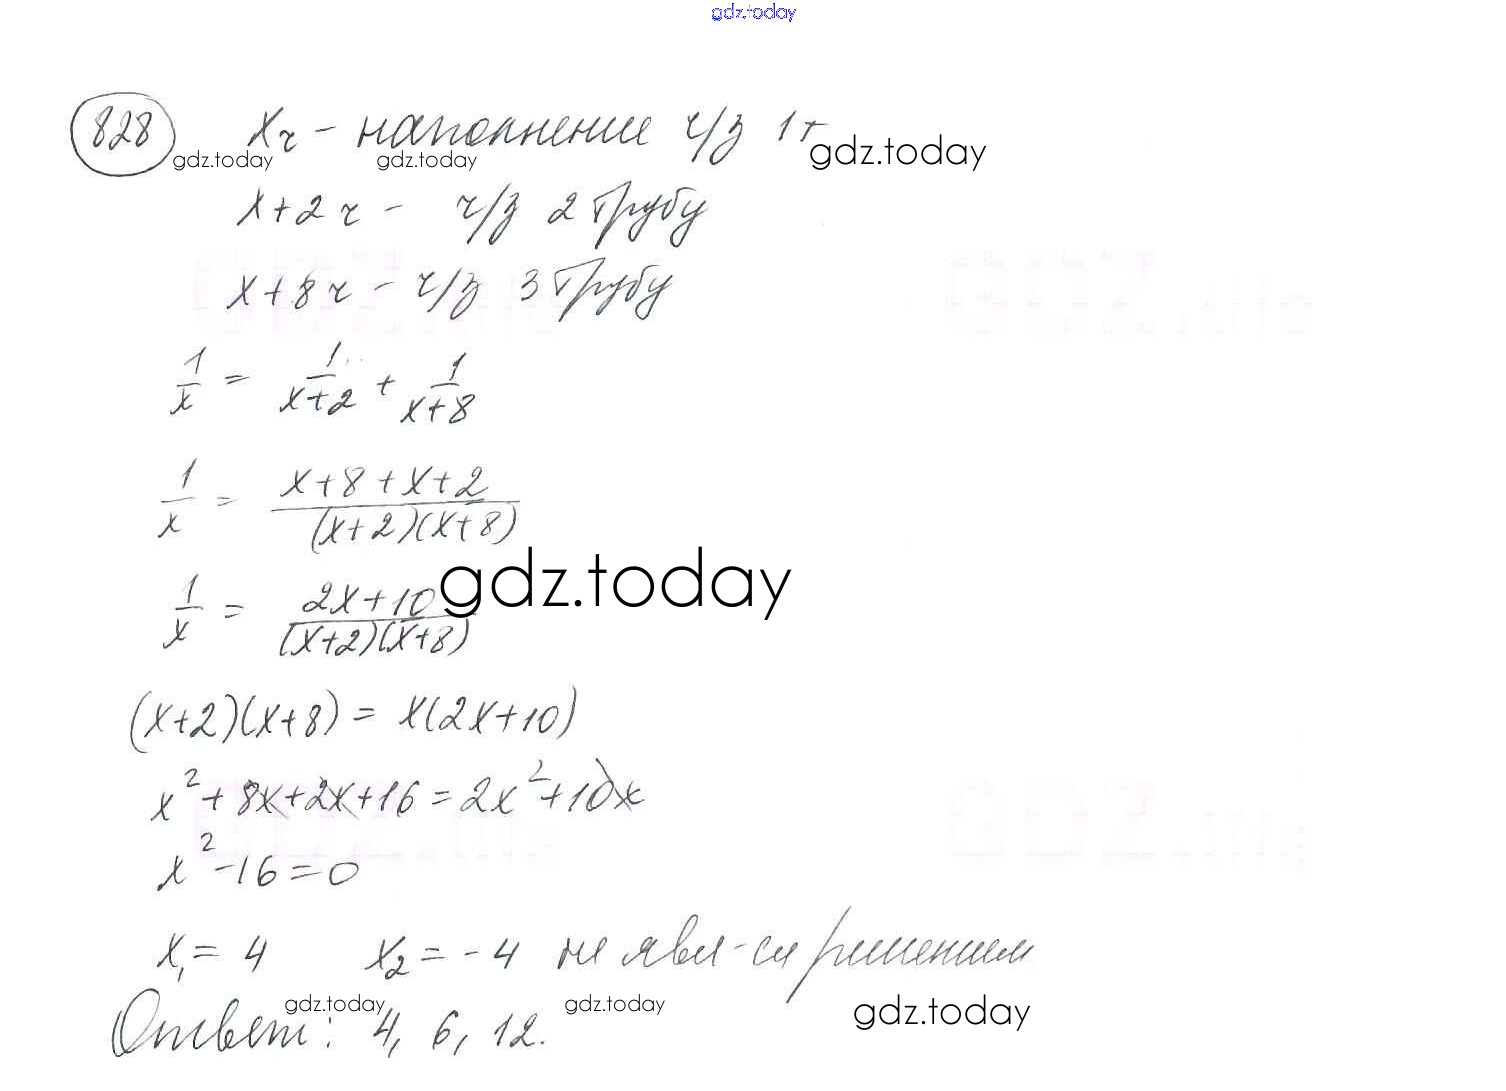 gdz.today
828 x ч - наполнение ч/з 1 т
gdz.today gdz.today gdz.today
x+2 ч - ч/з 2 трубу
x+8 ч - ч/з 3 трубу
GDZ.life GDZ.life
1/x = 1/(x+2) + 1/(x+8)
1/x = (x+8+x+2)/((x+2)(x+8))
gdz.today
1/x = (2x+10)/((x+2)(x+8))
(x+2)(x+8) = x(2x+10)
x²+8x+2x+16=2x²+10x
GDZ.life GDZ.life
x²-16=0
x₁= 4 x₂= -4 не явл-ся решением
gdz.today gdz.today gdz.today
Ответ: 4, 6, 12.